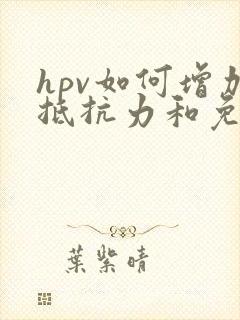 hpv如何增加
抵抗力和免
葉紫晴